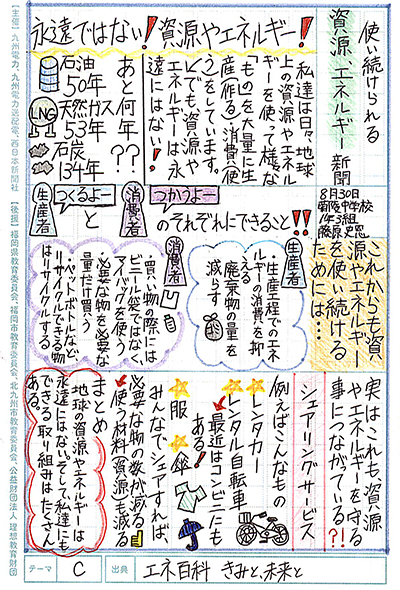 使い続けられる
資源、エネルギー 新聞
8月30日
1年3組
永遠ではない!資源やエネルギー!
私達は日々、地球
上の資源やエネル
ギーを使って様々な
ものを大量に生
産(作る)、消費(使
う)をしています。
しかしでも、資源や
エネルギーは永
遠にはない!
あと何年??
石油
50年
LNG
天然ガス
53年
石炭
134年
生産者
つくるよー
と
消費者
つかうよー
のそれぞれにできること!!
これからも資
源やエネルギー
を使い続ける
ためには…
生産者
・生産工程でのエネ
ルギーの消費を抑
える
・廃棄物の量を
減らす
消費者
・買い物の際には
ビニール袋ではなく、
マイバッグを使う
・必要な物を必要な
量だけ買う
・ペットボトルなど、
リサイクルできる物は
リサイクルする
実はこれも資源
やエネルギーを守る
事につながっている?!
シェアリングサービス
例えばこんなもの
レンタカー
レンタル自転車
最近はコンビニにも
ある!
服 傘
みんなでシェアすれば、
必要な物の数が減る
使う材料、資源も減る
まとめ
地球の資源やエネルギーは
永遠にはない。そして私達にも
できる取り組みはたくさん
ある。
テーマ C 出典 エネ百科 きみと、未来と
【主催】九州電力、九州電力送配電、西日本新聞社 【後援】福岡県教育委員会、福岡市教育委員会、北九州市教育委員会、公益財団法人 理想教育財団